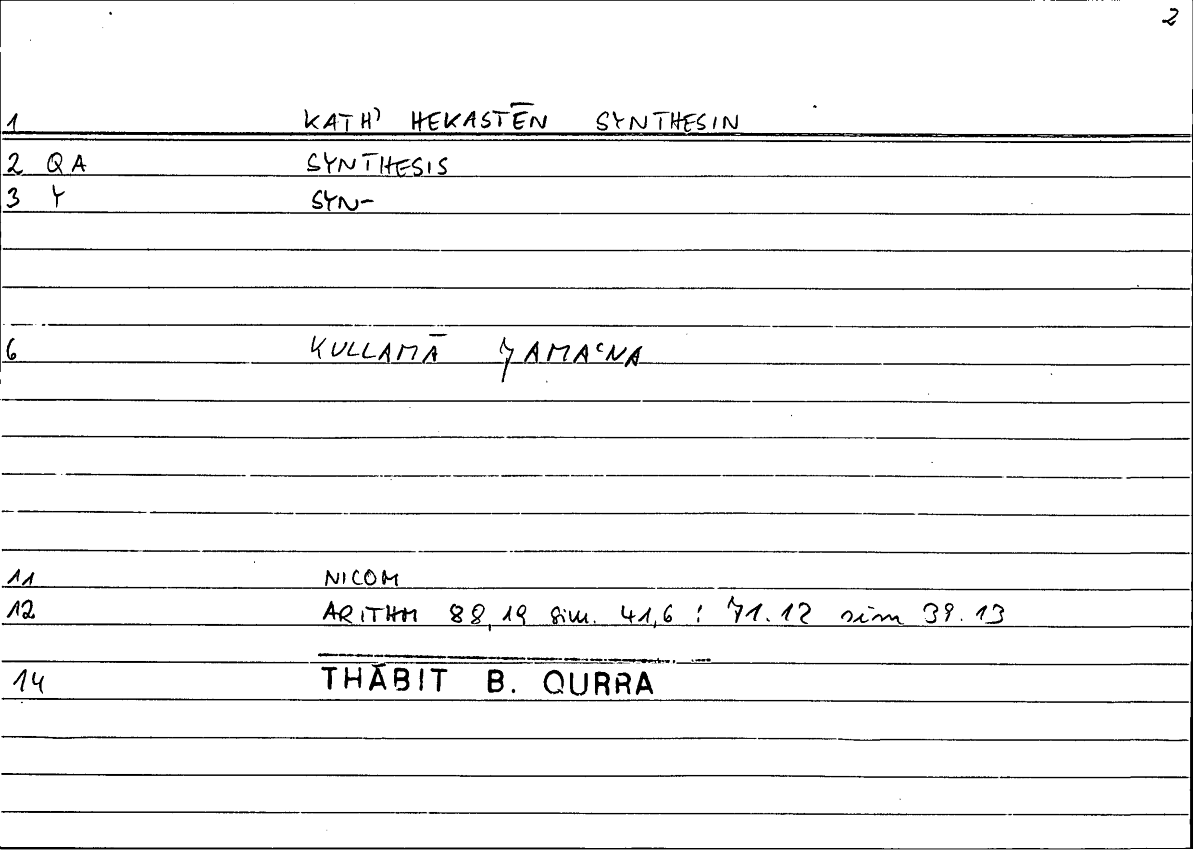 2
1 KATH' HEKASTĒN SYNTHESIN
2 QA SYNTHESIS
3 Y SYN-
6 KULLAMĀ ǦAMAʿNA
11 NICOM
12 ARITHM 88,19 sim. 41,6 : 71.12 sim 39.13
14 THĀBIT B. QURRA